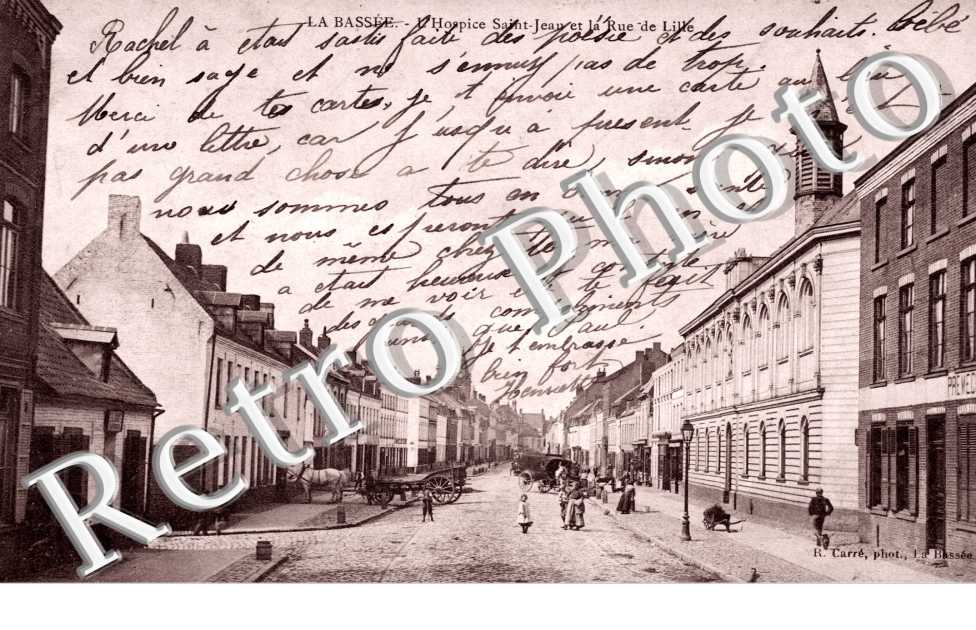 LA BASSÉE. - L'Hospice Saint-Jean et la Rue de Lille
Rachel à était satisfaite des poésie et des souhaits. Bébé
et bien sage et ne s'ennuy pas de trop.
Merci de tes cartes, je t'envoie une carte au lieu
d'une lettre, car jusqu'à présent je
pas grand chose a te dire, sinon
nous sommes tous en santé
et nous esperons
de même chez
a était heureuse
de me voir et te fait
des compliments
que Paul.
Je t'embrasse
bien fort
Henriette
Retro Photo
R. Carré, phot., La Bassée